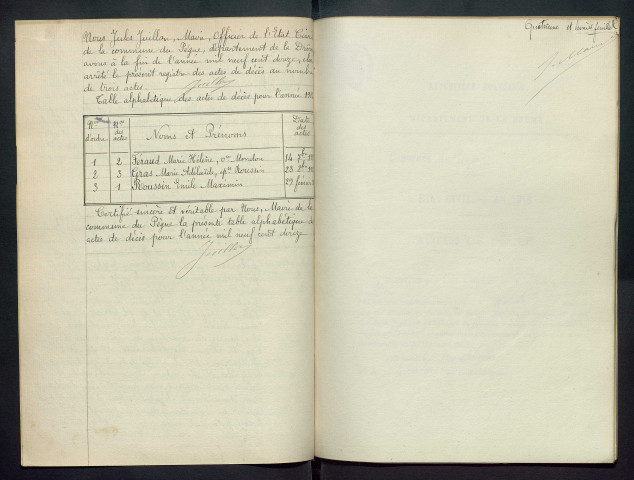 Nous Jules Juillan, Maire, Officier de l'Etat Civil
de la commune du Pègue, département de la Drôme
avons à la fin de l'année mil neuf cent douze, clos
arrêté le présent registre des actes de décès au nombre
de trois actes.
Table alphabétique des actes de décès pour l'année 19
Nos d'ordre
Nos des actes
Noms et Prénoms
Date des actes
1 2 Féraud Marie Hélène, ve Mondon 14
2 3 Gras Marie Adélaïde, épse Roussin 23
3 1 Roussin Emile Maximin 27 février
Certifié sincère et véritable par Nous, Maire de la
commune du Pègue la présente table alphabétique des
actes de décès pour l'année mil neuf cent douze
Quatrième et dernier feuillet